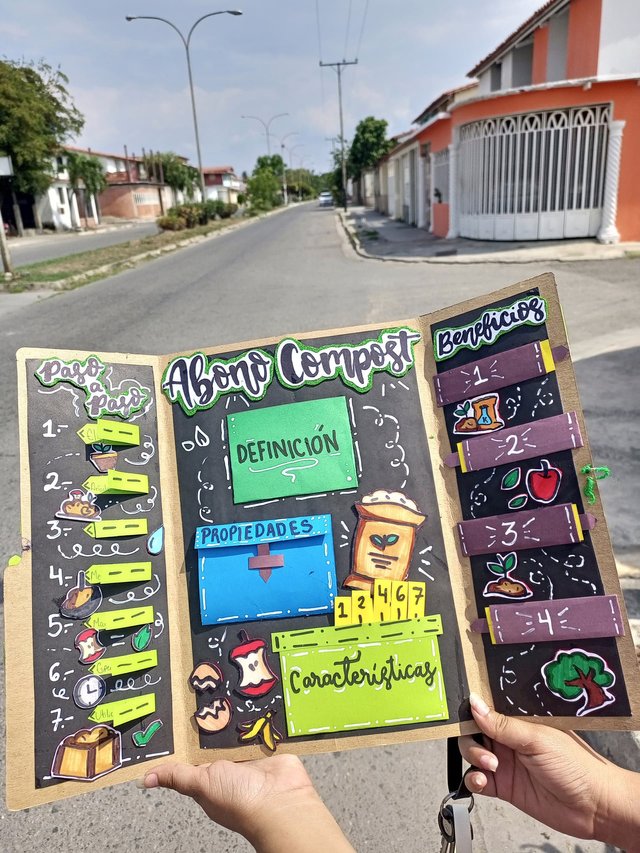 Paso
a
Paso
1.-
2.-
3.-
4.-
5.-
6.-
7.-
Abono Compost
DEFINICIÓN
PROPIEDADES
1 2 4 6 7
Características
Beneficios
1
2
3
4